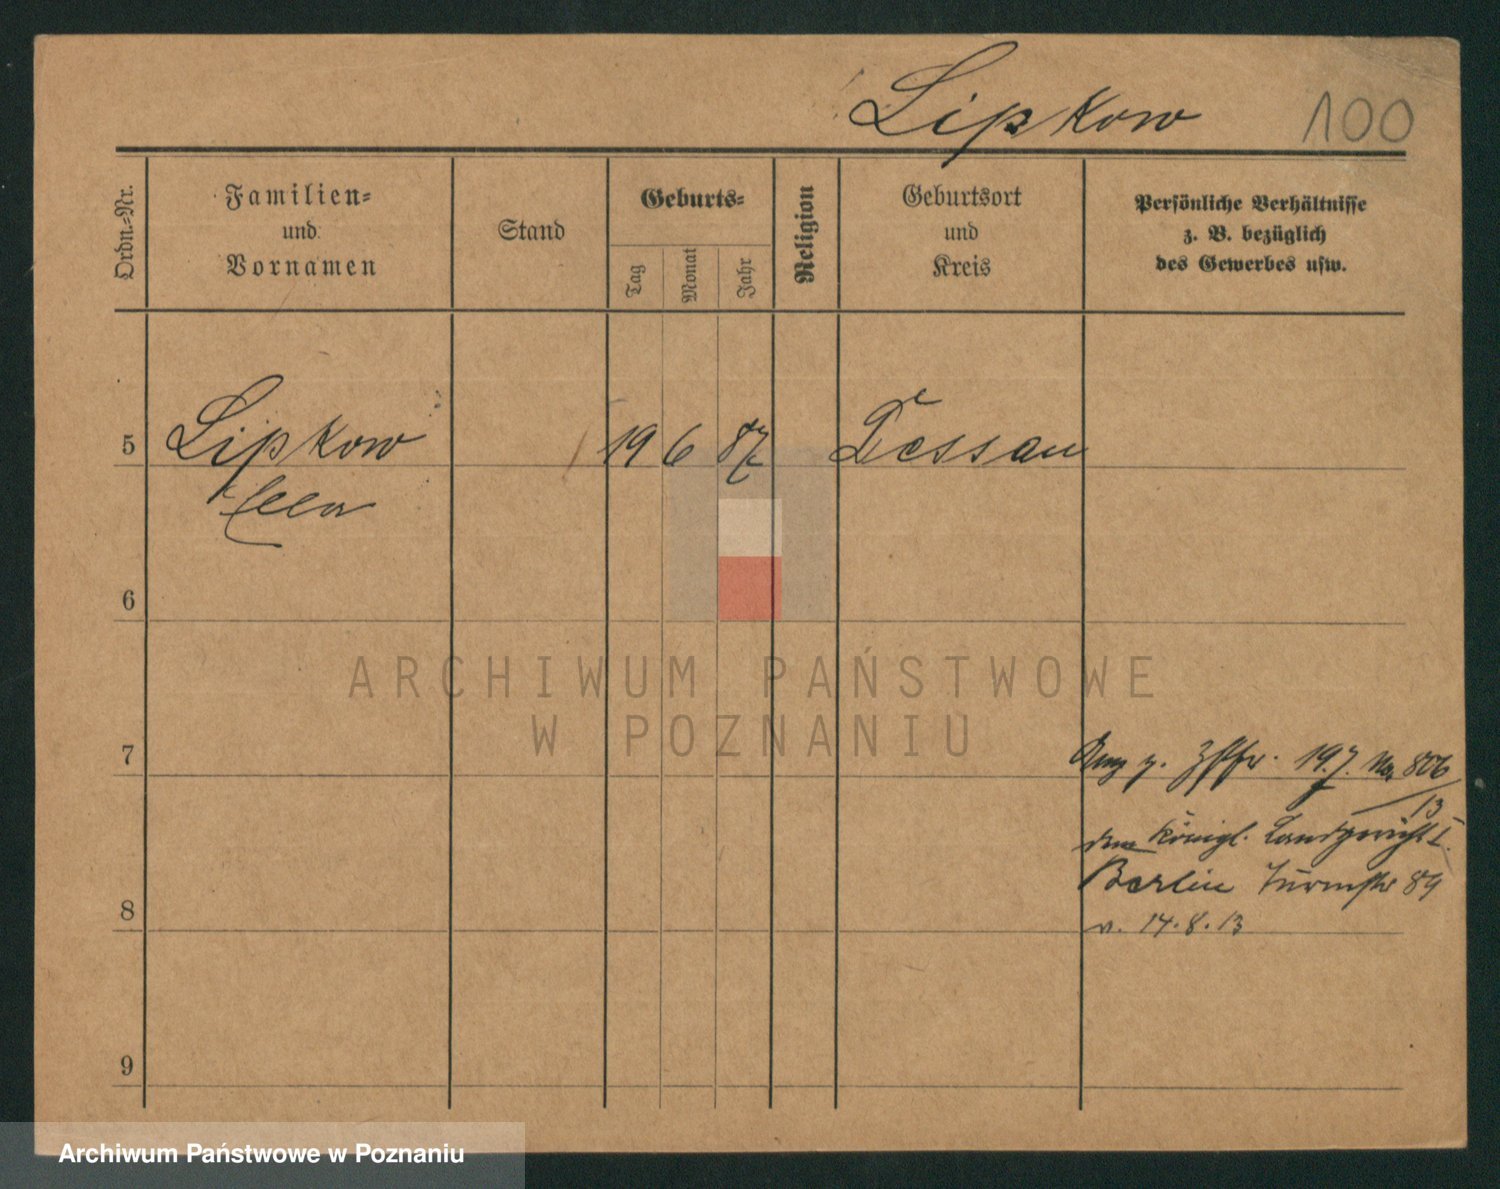 Lipkow 100
Ordn.-Nr.
Familien-
und
Vornamen
Stand
Geburts-
Tag
Monat
Jahr
Religion
Geburtsort
und
Kreis
Persönliche Verhältnisse
z. B. bezüglich
des Gewerbes usw.
5 Lipkow 19 6 87 Dessau
Ella
6
ARCHIWUM PAŃSTWOWE
W POZNANIU
7
19.7. No. 806
13
dem Königl. Landgericht I.
Berlin Turmstr 89
8
v. 14.8.13
9
Archiwum Państwowe w Poznaniu